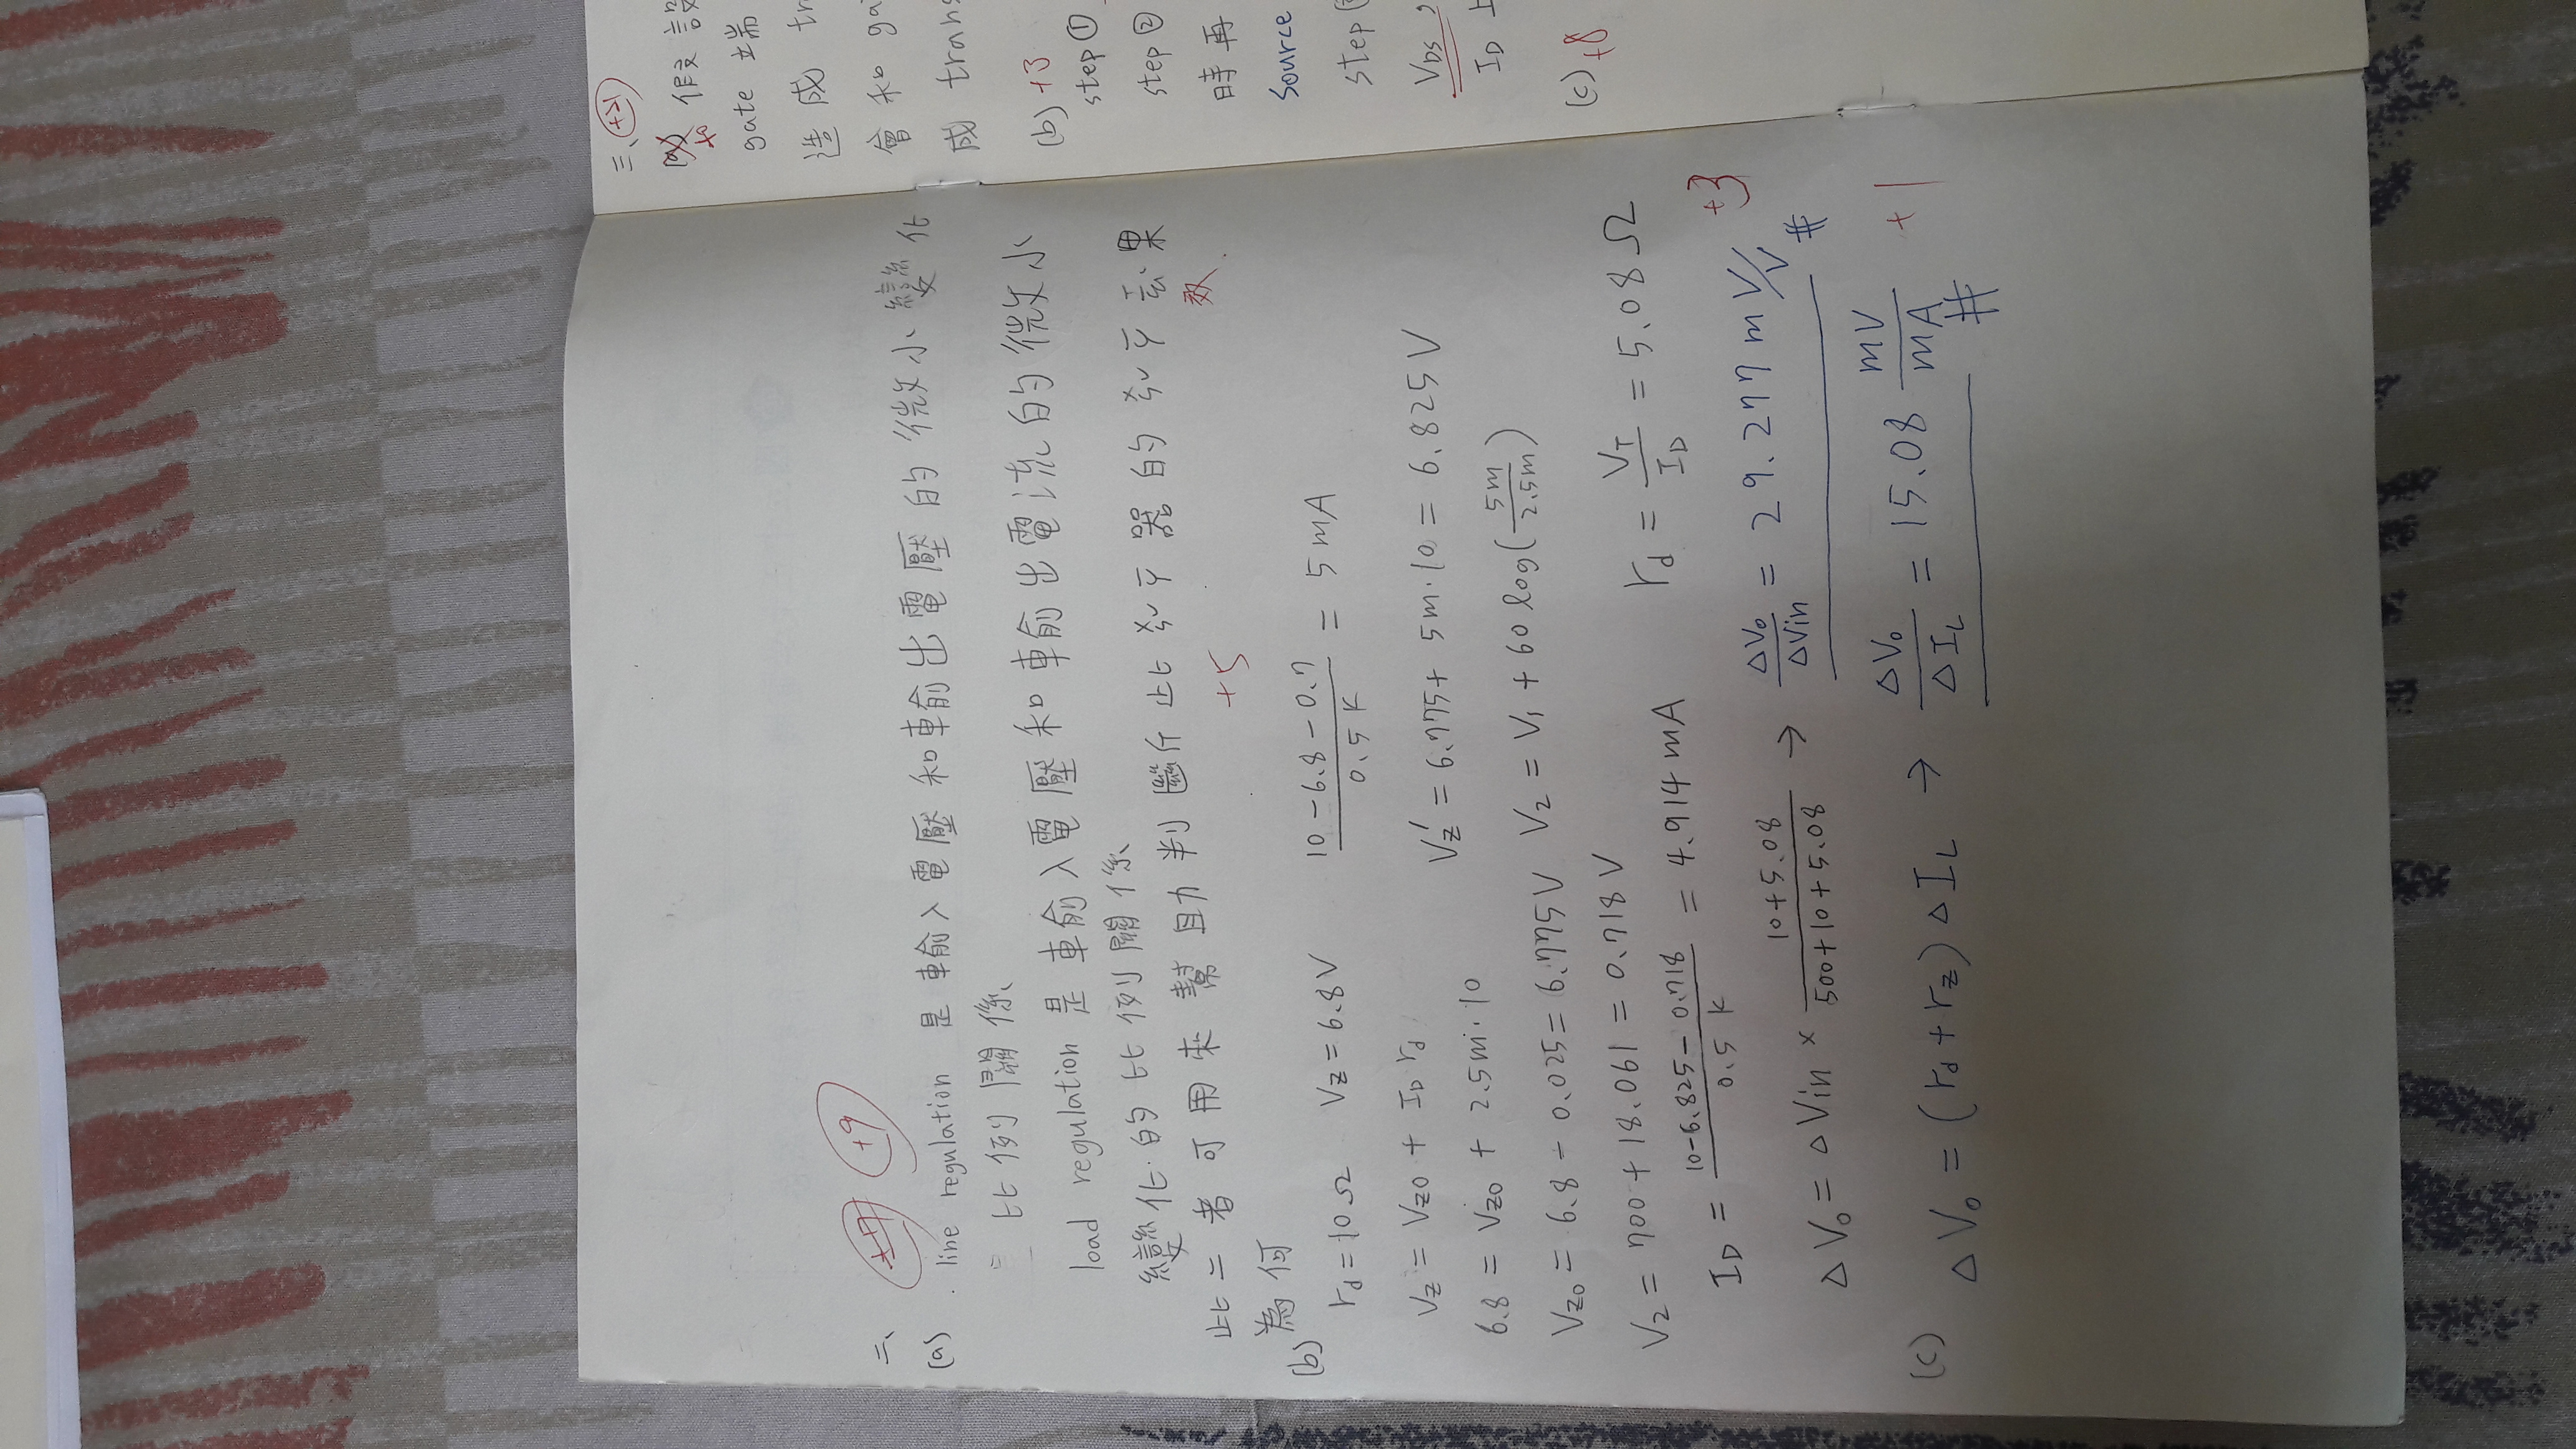 二、 +7 +9
(a) . line regulation 是輸入電壓和輸出電壓的微小變化
比例關係
load regulation 是輸入電壓和輸出電流的微小
變化的比例關係
此二者可用來幫助判斷此 器的 果
效
+5
為何
(b)
rd = 10Ω Vz = 6.8V (10 - 6.8 - 0.7)/(0.5 K) = 5 mA
Vz = Vz0 + ID rd
Vz' = 6.775 + 5m·10 = 6.825 V
6.8 = Vz0 + 2.5m·10
Vz0 = 6.8 - 0.025 = 6.775V V2 = V1 + 60 log(5m/2.5m)
V2 = 700 + 18.061 = 0.718 V
ID = (10 - 6.825 - 0.718)/(0.5 K) = 4.914 mA rd = VT/ID = 5.08 Ω
+3
ΔVo = ΔVin × (10 + 5.08)/(500 + 10 + 5.08) → ΔVo/ΔVin = 29.277 mV/V #
(c) ΔVo = (rd + rz) ΔIL → ΔVo/ΔIL = 15.08 mV/mA # +1
三、 +21
(a) +0 假設
gate 端
造成 tr
會和 ga
成 trans
(b) +3
step ①
step ②
時再
Source
step
VDS ,
ID 上
(c) +8